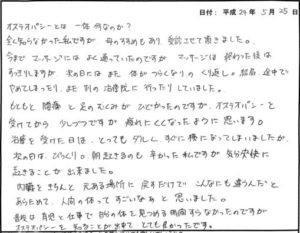 日付: 平成 29年 5月 25日
オステオパシーとは 一体 何なのか?
全く知らなかった私ですが 母のすすめもあり、受診させて頂きました。
今まで マッサージには よく通っていたのですが マッサージは 終わった後は
すっきりしますが 次の日には また 体が つらくなり のくり返し。結局、途中で
やめてしまったり、また 別の治療院に 行ったりしていました。
もともと 腰痛 と 足の むくみが ひどかったのですが、オステオパシーと
受けてから 少しづつですが 疲れにくくなった ように 思います。
治療を受けた日は、とっても ダルく すぐに横になってしまいましたが、
次の日は、びっくり。朝起きるのも 辛かった私ですが 気分爽快に
起きることが 出来ました。
内臓を きちんと 元ある場所に 戻すだけで こんなにも違うんだと
あらためて、人間の体って すごいなぁ と 思いました。
普段は 育児と仕事で 自分の体を見つめる 時間すらなかったのですが
オステオパシーを 知ることが出来て とても良かったです。